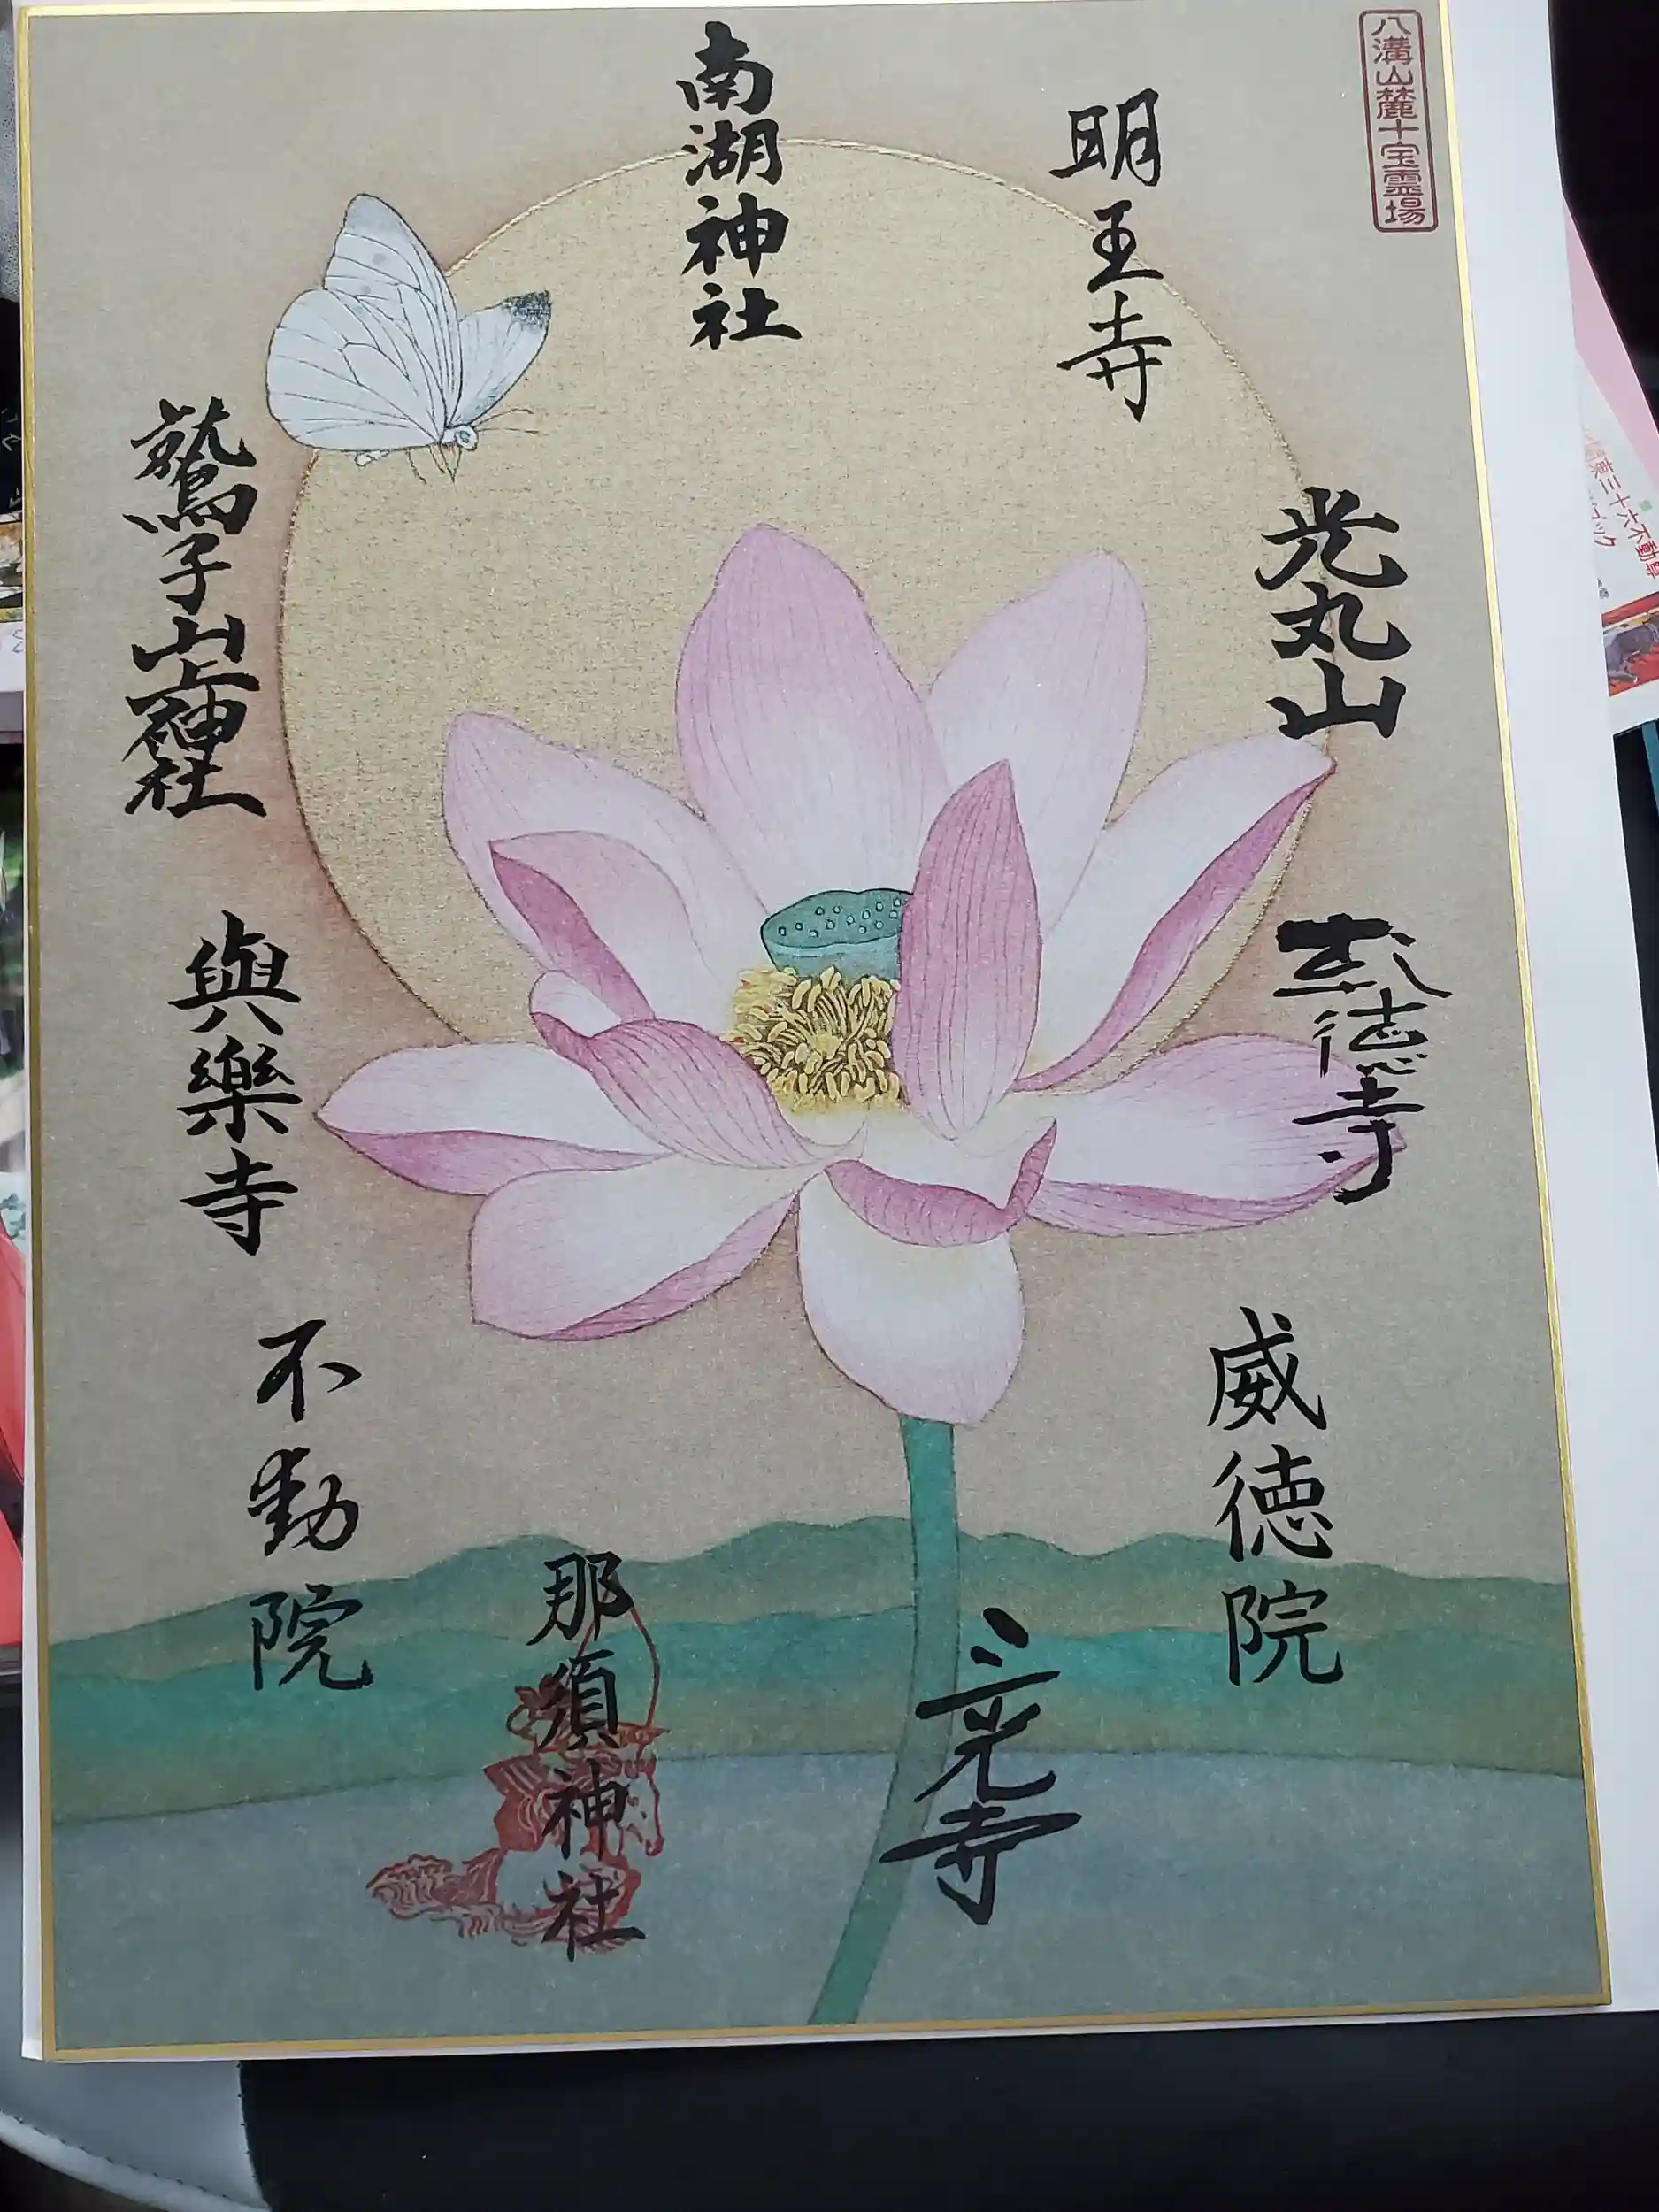 八溝山麓十宝霊場
明王寺
光丸山
威徳院
三光寺
南湖神社
那須神社
不動院
與樂寺
鷲子山上神社
東三十六不動尊